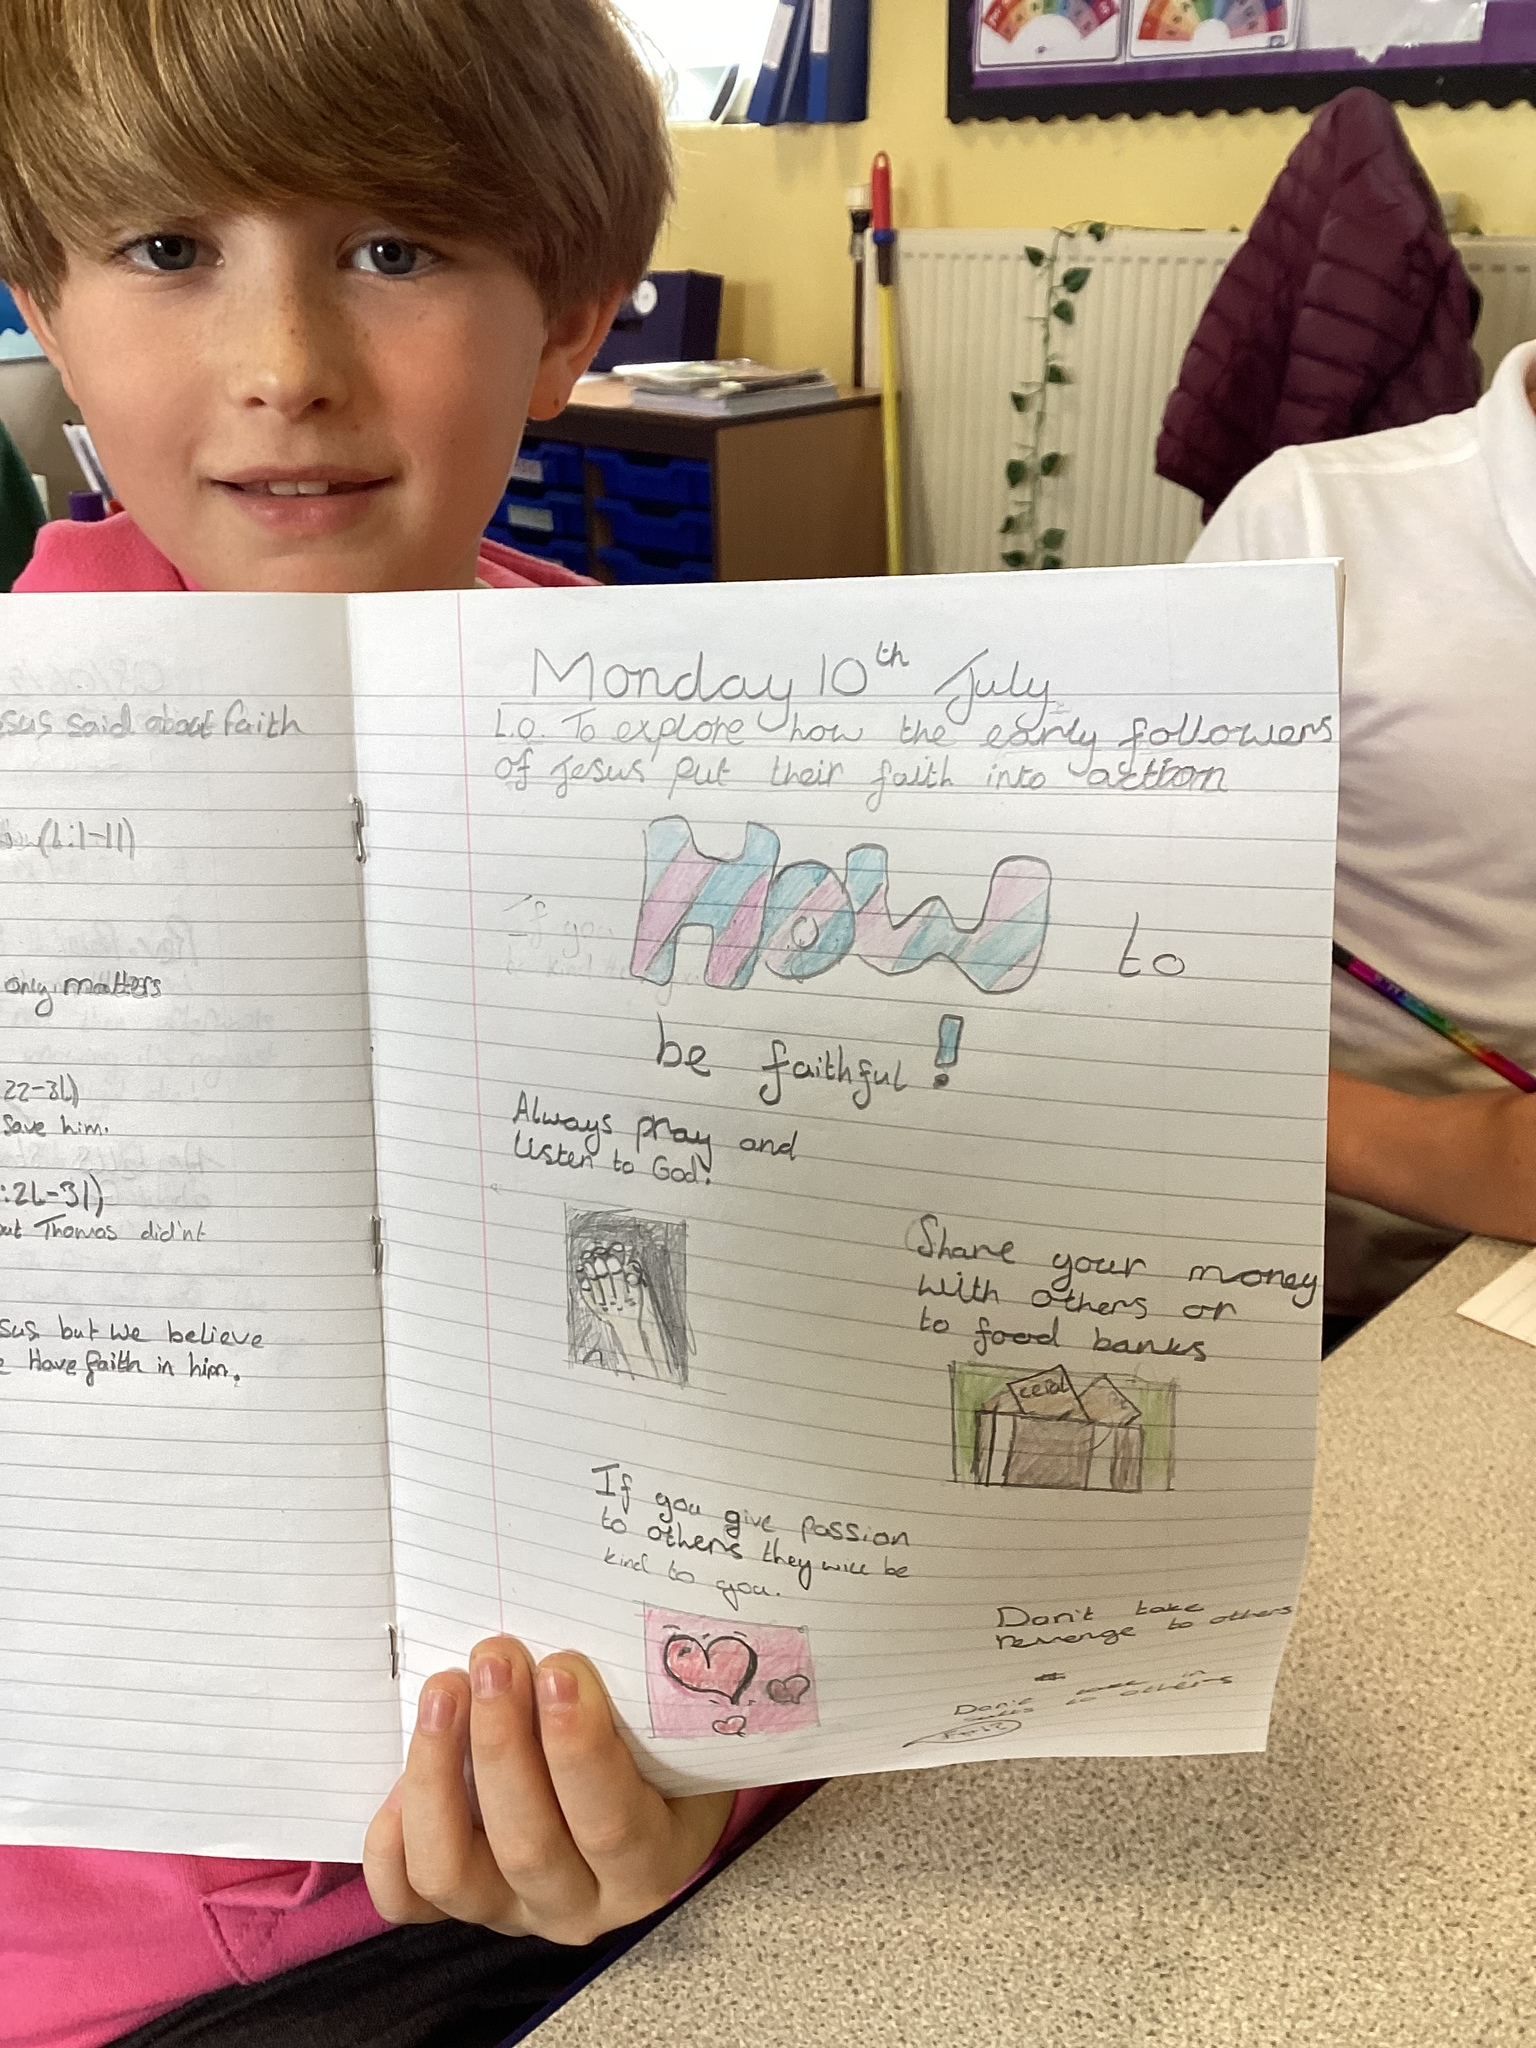 sus said about faith
(6:1-11)
only matters
22-31)
save him.
Thomas did'nt
sus but we believe
Have faith in him.
Monday 10th July
L.O. To explore how the early followers
of Jesus put their faith into action
HOW to
be faithful!
Always pray and
listen to God.
Share your money
with others or
to food banks
If you give passion
to others they will be
kind to you.
Don't take
revenge to others
Don't
to others